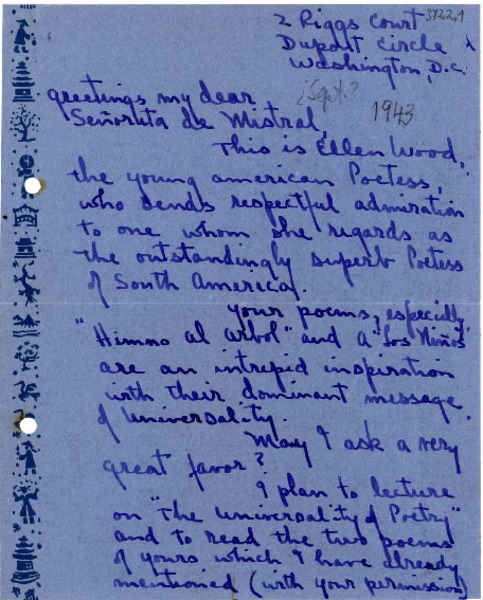 2 Riggs Court
Dupont Circle
Washington, D.C.
¿Sept.?
1943
greetings my dear
Señorita de Mistral,
This is Ellen Wood,
the young american Poetess,
who sends respectful admiration
to one whom she regards as
the outstandingly superb Poetess
of South America.
your poems, especially
"Himno al arbol" and A "Los Niños"
are an intrepid inspiration
with their dominant message
of Universality.
May I ask a very
great favor?
I plan to lecture
on "The Universality of Poetry"
and to read the two poems
of yours which I have already
mentioned (with your permission)